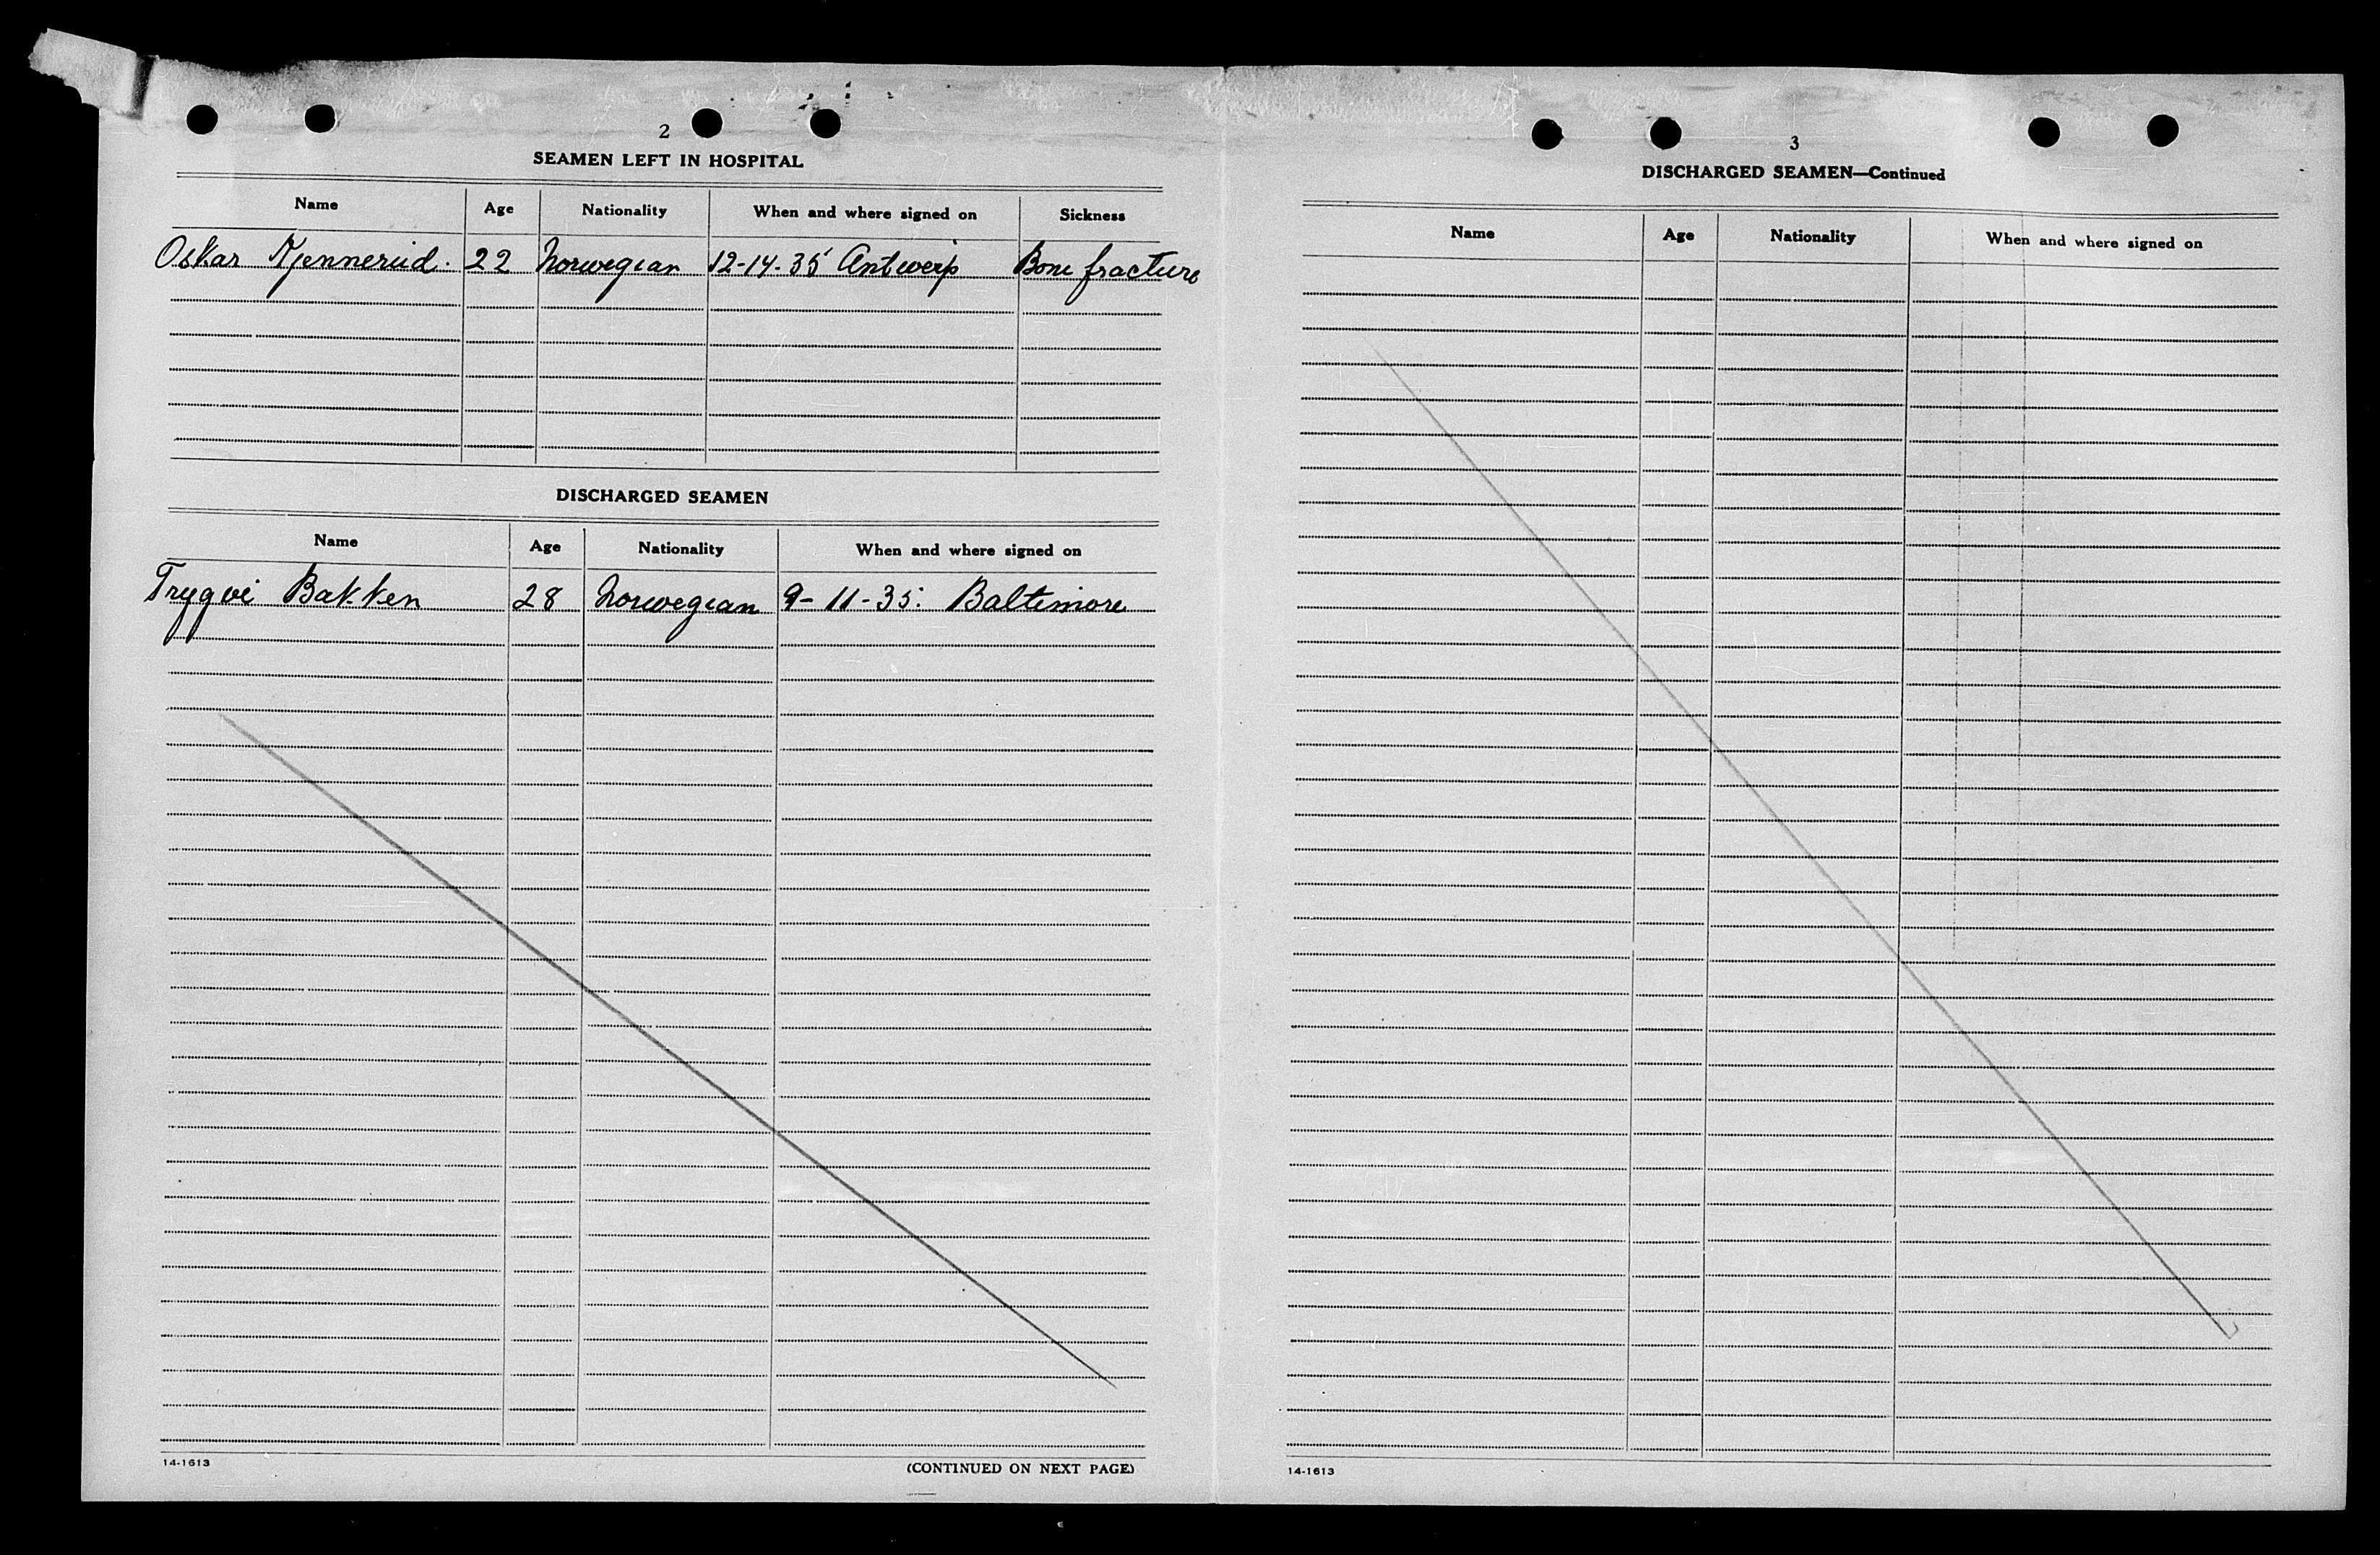 2
SEAMEN LEFT IN HOSPITAL
Name Age Nationality When and where signed on Sickness
Oskar Kjennerud. 22 Norwegian 12-14-35 Antwerp Bone fracture
DISCHARGED SEAMEN
Name Age Nationality When and where signed on
Trygve Bakken 28 Norwegian 9-11-35. Baltimore
14-1613
(CONTINUED ON NEXT PAGE)
3
DISCHARGED SEAMEN—Continued
Name Age Nationality When and where signed on
14-1613